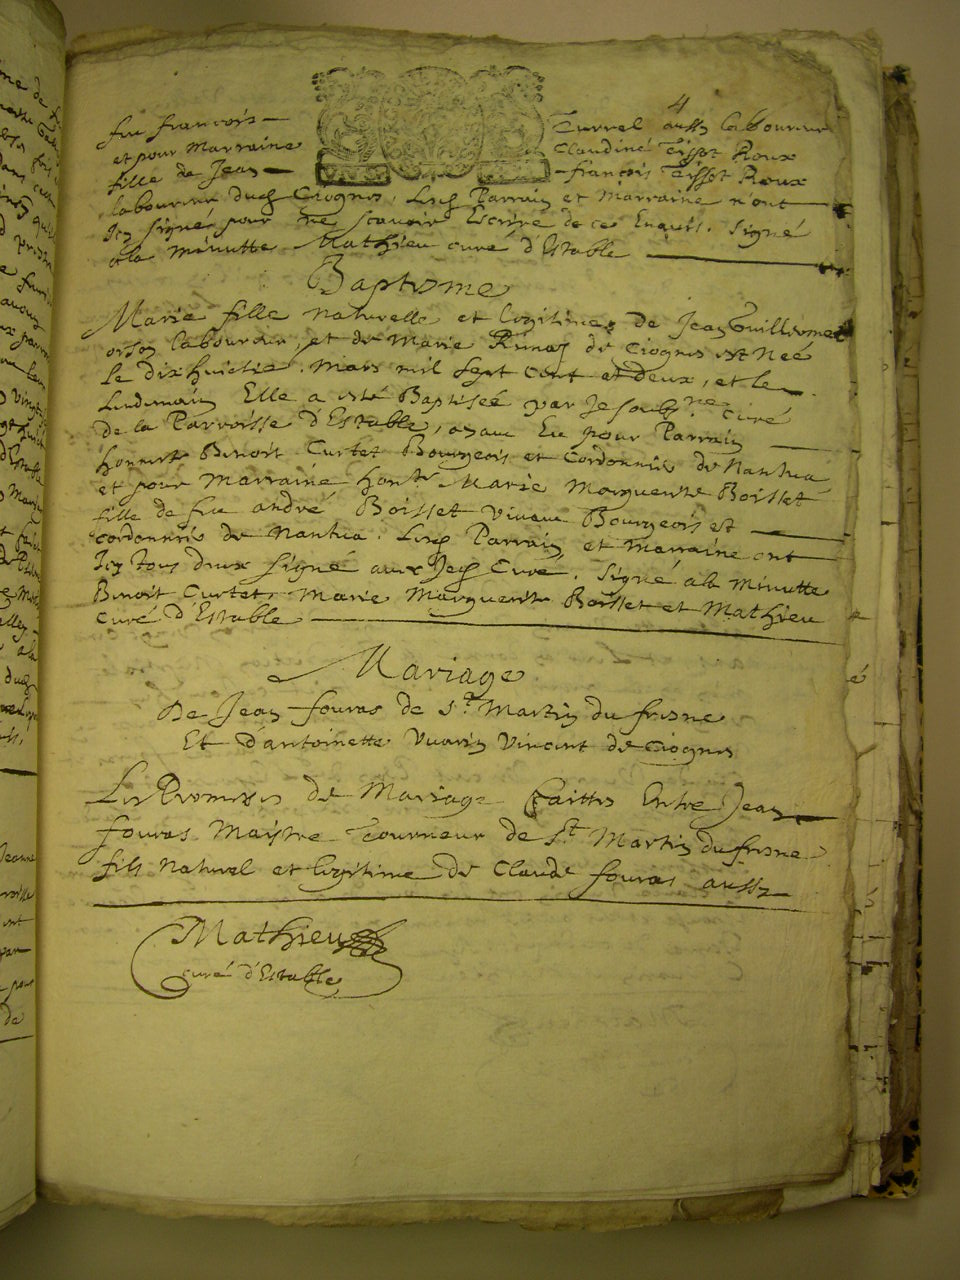 4
feu francois Turrel aussy labboureur
et pour Marraine Claudine Tissot Roux
fille de Jean francois Tissot Roux
laboureur dud Ciognes, Lesd Parrain et Marraine n'ont
Icy signé pour ne scavoir Escrire de ce Enquis. Signé
ala minutte Mathieu curé d'Estable
Baptesme
Marie fille naturelle et legitime de Jean Guillerme
laboureur, et de Marie de Ciognes est Neé
le dix huictie. Mars mil sept cent et deux, et le
Lendemain Elle a esté Baptiseé par Je soubs.ne Curé
de la Parroisse d'Estable, ayant Eu pour Parrain
honnete Benoit Curtet Bourgeois et Cordonnie de Nantua
et pour Marraine honte Marie Marguerite Boisset
fille de feu andré Boisset vivant Bourgeois et
cordonnie de Nantua. Lesd Parrain et marraine ont
Icy Tous deux signé avec Jed Curé. Signé ala Minutte
Benoit Curtet Marie Marguerite Boisset et Mathieu
curé d'Estable
Mariage
De Jean fouras de St Martin du fresne
Et d'antoinette Vuarin Vincent de Ciognes
Les Promesses de Mariage faittes Entre Jean
fouras Maistre Tourneur de St Martin du fresne
fils naturel et legitime de Claude fouras aussy
Mathieu
curé d'Estable